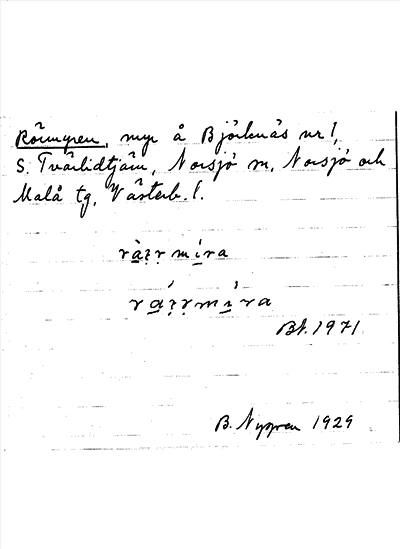 Rörmyren, myr å Björknäs nr 1,
S. Tvärlidtjärn, Norsjö sn, Norsjö och
Malå tg, Västerb. l.
Bl. 1971
B. Nygren 1929